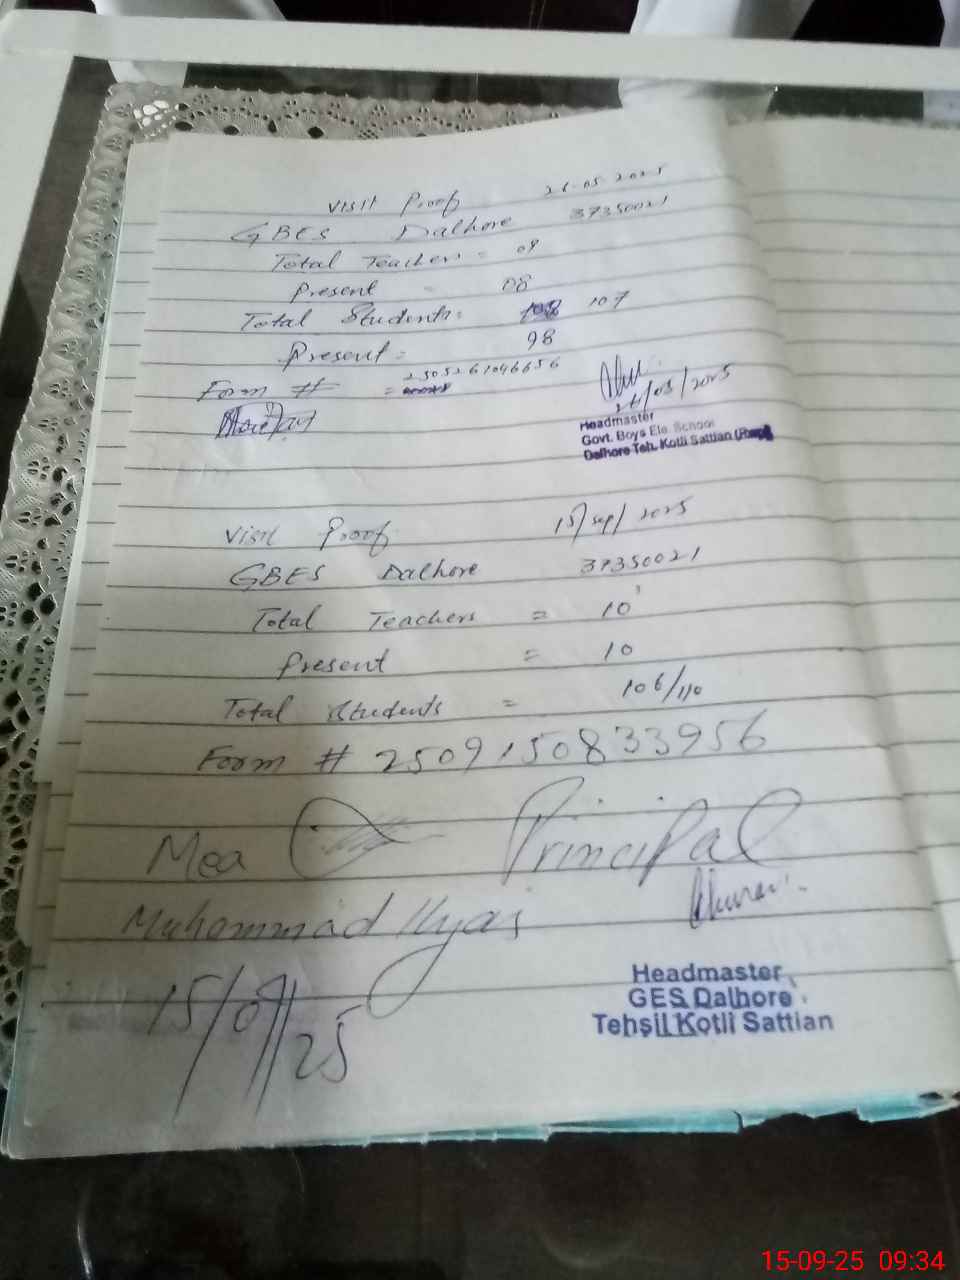 Visit Proof 26-05-2025
GBES Dalhore 37350021
Total Teachers = 08
Present - 08
Total Students = 107
Present = 98
Form # = 2505261046656
26/05/2025
Headmaster
Govt. Boys Ele. School
Dalhore Teh. Kotli Sattian (Rwp)
Visit Proof 15/sep/2025
GBES Dalhore 37350021
Total Teachers = 10
Present = 10
Total Students = 106/110
Form # 2509150833956
Mea Principal
Muhammad Ilyas
15/09/25
Headmaster
GES Dalhore
Tehsil Kotli Sattian
15-09-25 09:34